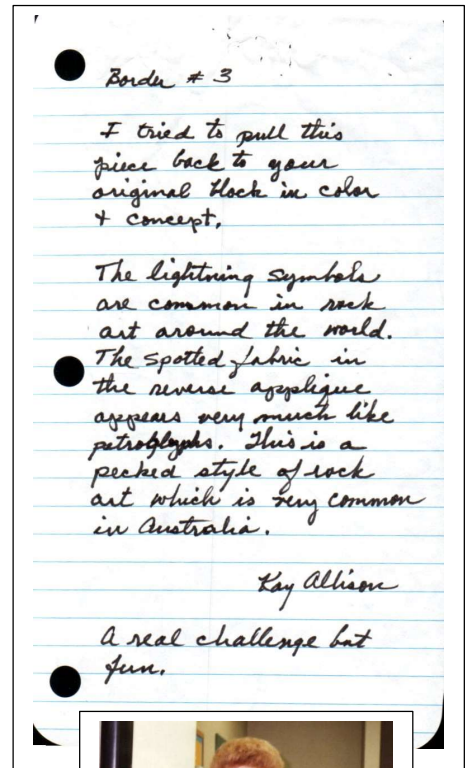 Border # 3
I tried to pull this
piece back to your
original block in color
+ concept.
The lightning symbols
are common in rock
art around the world.
The spotted fabric in
the reverse applique
appears very much like
petroglyphs. This is a
pecked style of rock
art which is very common
in Australia.
Kay Allison
A real challenge but
fun.